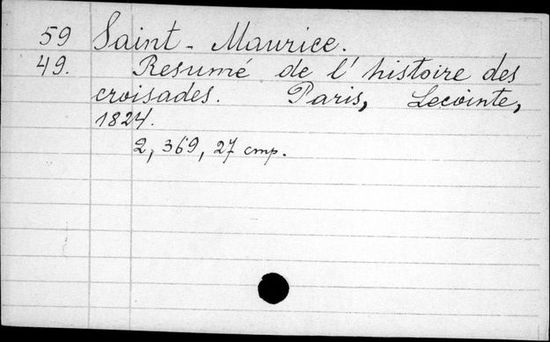 59 Saint-Maurice.
49. Resumé de l'histoire des
croisades. Paris, Lecointe,
1824.
2, 369, 27 стр.